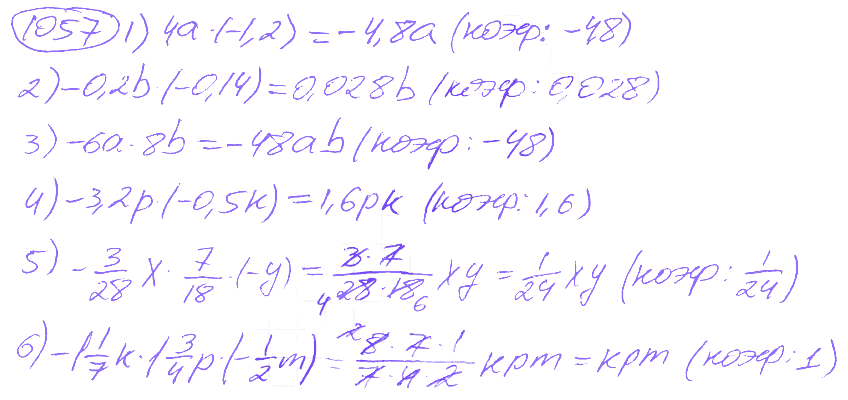 1057 1) 4a·(-1,2) = -4,8a (коэф: -48)
2) -0,2b·(-0,14) = 0,028b (коэф: 0,028)
3) -6a·8b = -48ab (коэф: -48)
4) -3,2p·(-0,5k) = 1,6pk (коэф: 1,6)
5) -3/28 x · 7/18 · (-y) = 3·7/28·18 4 6 xy = 1/24 xy (коэф: 1/24)
6) -1 1/7 k · 1 3/4 p · (-1/2 m) = 2 8·7·1/7·4·2 kpm = kpm (коэф: 1)